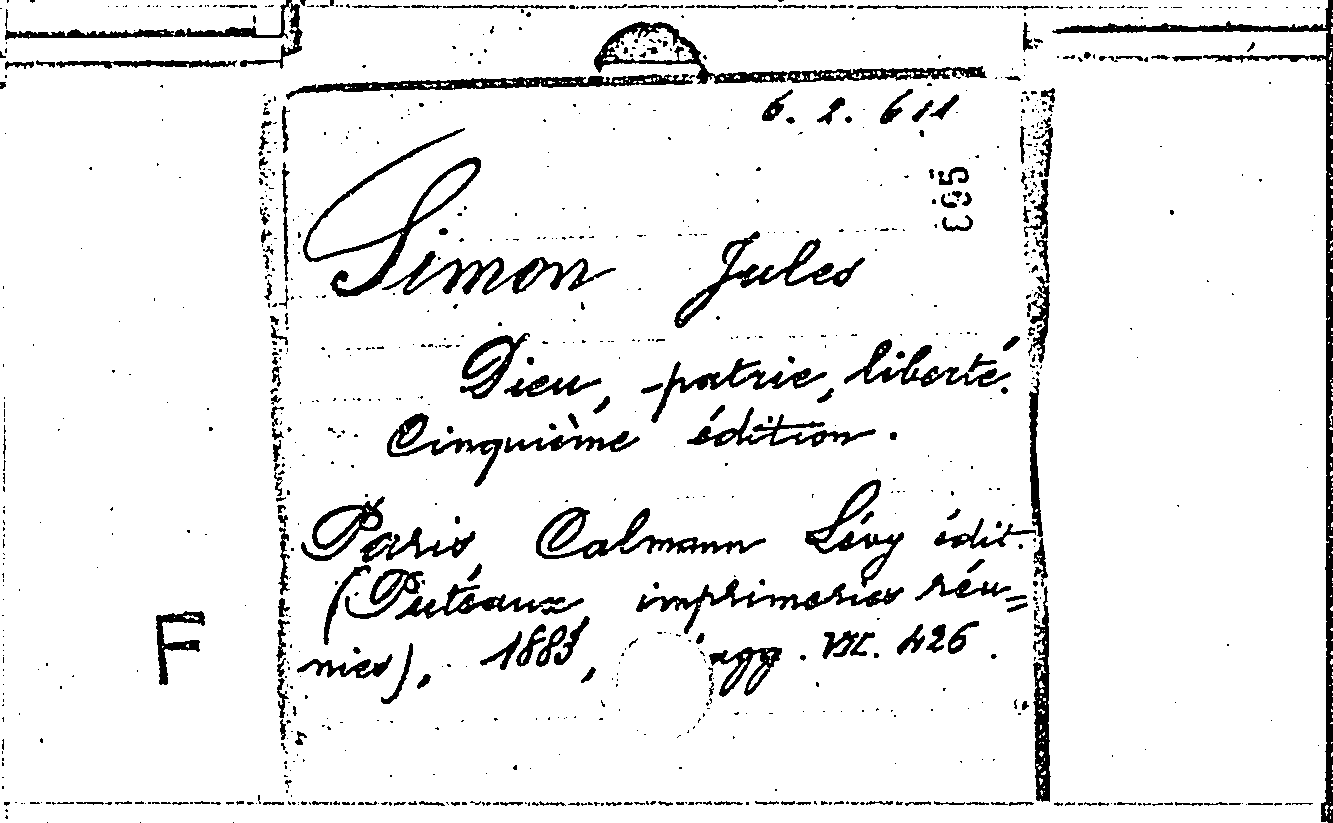 6. 2. 611
Simon Jules
Dieu, patrie, liberté.
Cinquième édition.
Paris, Calmann Lévy édit.
(Putéaux, imprimeries réu=
nies), 1883, agg. VII. 426.
F